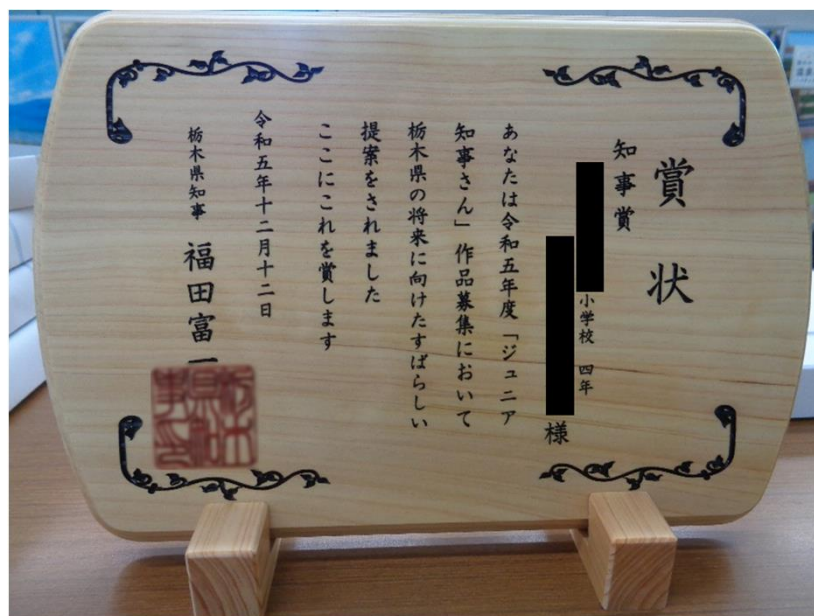 賞状
知事賞
小学校 四年
様
あなたは令和五年度「ジュニア
知事さん」作品募集において
栃木県の将来に向けたすばらしい
提案をされました
ここにこれを賞します
令和五年十二月十二日
栃木県知事 福田富一